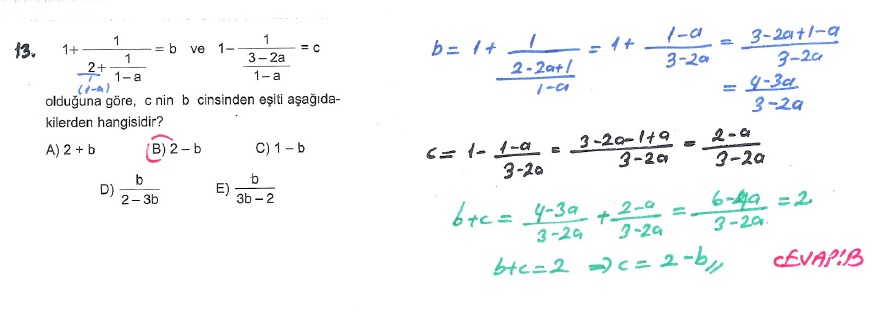 13. 1 + 1/(2 + 1/(1 – a)) = b ve 1 – 1/((3 – 2a)/(1 – a)) = c
1 (1-a)
olduğuna göre, c nin b cinsinden eşiti aşağıda-
kilerden hangisidir?
A) 2 + b B) 2 – b C) 1 – b
D) b/(2 – 3b) E) b/(3b – 2)
b = 1 + 1/((2-2a+1)/(1-a)) = 1 + (1-a)/(3-2a) = (3-2a+1-a)/(3-2a)
= (4-3a)/(3-2a)
c = 1 - (1-a)/(3-2a) = (3-2a-1+a)/(3-2a) = (2-a)/(3-2a)
b+c = (4-3a)/(3-2a) + (2-a)/(3-2a) = (6-4a)/(3-2a) = 2
b+c = 2 ⇒ c = 2-b,, CEVAP:B